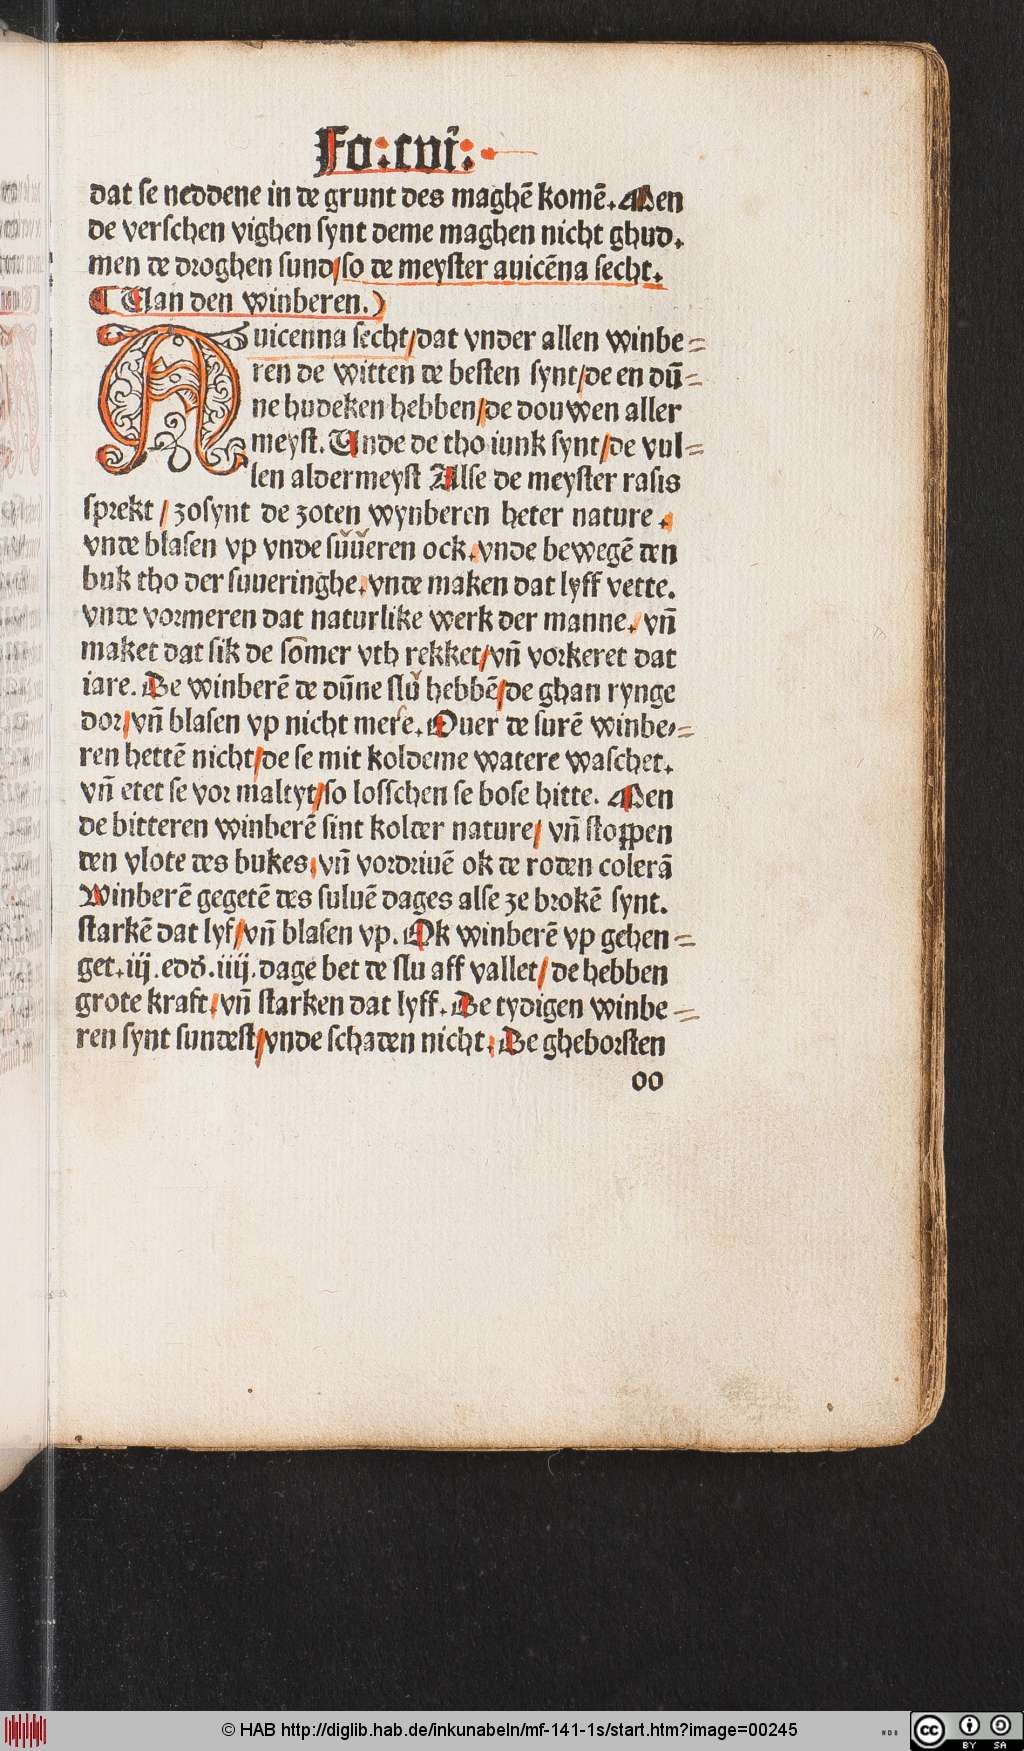 Fo: cvi:
dat se neddene in de grunt des maghē komē. Men
de verschen vighen synt deme maghen nicht ghud.
men de droghen sund/so de meyster auicēna secht.
¶ Uan den winberen.)
Auicenna secht/dat vnder allen winbe=
ren de witten de besten synt/de en dū=
ne hudeken hebben/de douwen aller
meyst. Unde de tho iunk synt/de vul=
len aldermeyst Alse de meyster rasis
sprekt / zosynt de zoten wynberen heter nature.
vnde blasen vp vnde suueren ock. vnde bewegē den
buk tho der suueringhe. vnde maken dat lyff vette.
vnde vormeren dat naturlike werk der manne. vn̄
maket dat sik de somer vth rekket/vn̄ vorkeret dat
iare. De winberē de dūne slu hebbē/de ghan rynge
dor/vn̄ blasen vp nicht mere. Ouer de surē winbe=
ren hettē nicht/de se mit koldeme watere waschet.
vn̄ etet se vor maltyt/so losschen se bose hitte. Men
de bitteren winberē sint kolder nature/ vn̄ stoppen
den vlote des bukes. vn̄ vordriuē ok de roden colerā
Winberē gegetē des suluē dages alse ze brokē synt.
starkē dat lyf/vn̄ blasen vp. Ok winberē vp gehen=
get. iij .edď. iiij. dage bet de slu aff vallet/ de hebben
grote kraft. vn̄ starken dat lyff. De tydigen winbe=
ren synt sundest/vnde schaden nicht. De gheborsten
oo
© HAB http://diglib.hab.de/inkunabeln/mf-141-1s/start.htm?image=00245
WDB
cc
BY SA